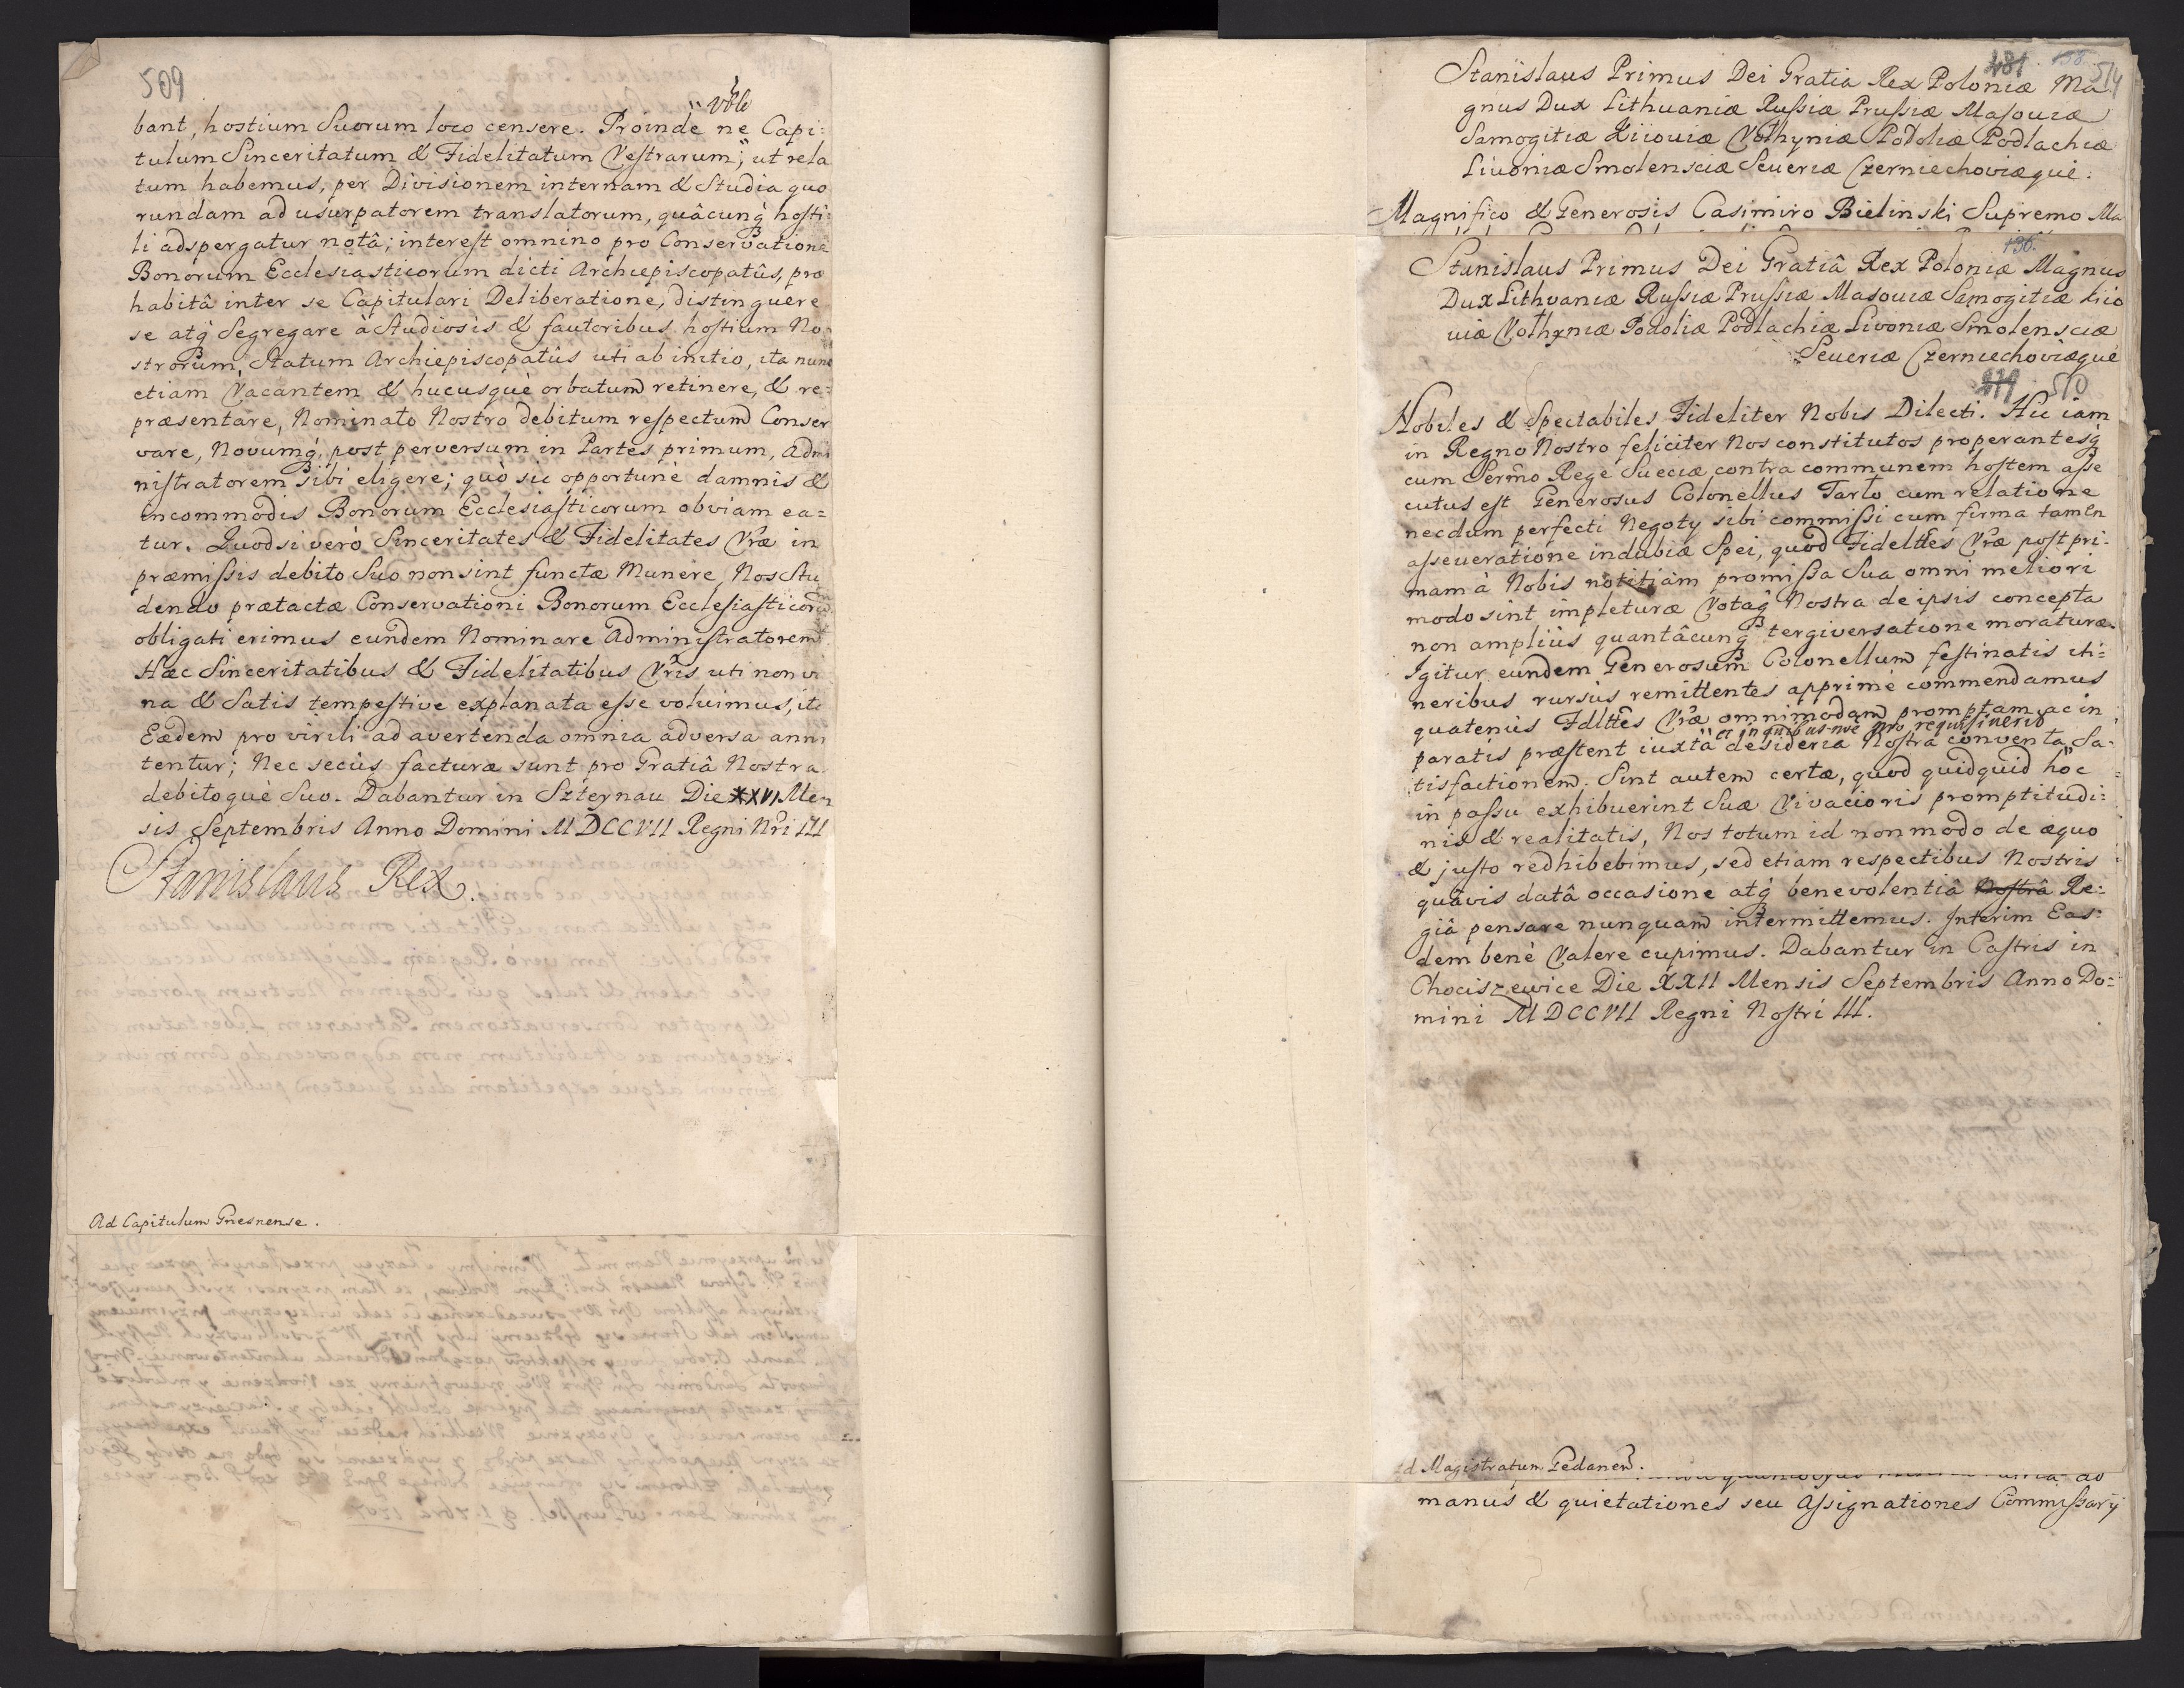 509
" Vtile
bant, hostium Suorum loco censere. Proinde ne Capi:
tulum Sinceritatum & Fidelitatum Vestrarum," ut rela
tum habemus, per Divisionem internam & Studia quo
rundam ad usurpatorem translatorum, quâcunq hosti:
li adspergatur notâ; interest omnino pro Conservatione
Bonorum Ecclesiasticorum dicti Archiepiscopatûs, præ
habitâ inter se Capitulari Deliberatione, distinguere
se atq Segregare à Studiosis & fautoribus hostium No
strorum, Statum Archiepiscopatûs uti ab initio, ita nunc
etiam Vacantem & hucusquè orbatum retinere, & re=
præsentare, Nominato Nostro debitum respectum Conser
vare, Novumq, post perversum in Partes primum, Admi
nistratorem sibi eligere; quò sic opportunè damnis &
incommodis Bonorum Ecclesiasticorum obviam ea=
tur. Quodsi verò Sinceritates & Fidelitates Vræ in
præmissis debito Suo non sint functæ Munere, Nos Stu
dendo prætactæ Conservationi Bonorum Ecclesiasticorū
obligati erimus eundem Nominare Administratorem
Hæc Sinceritatibus & Fidelitatibus Vris uti non
na & Satis tempestive explanata esse voluimus, ita
Eædem pro virili ad avertenda omnia adversa anni
tentur; Nec secus facturæ sunt pro Gratiâ Nostra
debitoquè Suo. Dabantur in Szternau Die XXVI Men
sis Septembris Anno Domini MDCCVII Regni Nri III
Stanislaus Rex.
Ad Capitulum Gnesnense.
481 138. 514
Stanislaus Primus Dei Gratia Rex Poloniæ Ma
gnus Dux Lithuaniæ Russiæ Prussiæ Masouiæ
Samogitiæ Kiiouiæ Volhyniæ Podoliæ Podlachiæ
Liuoniæ Smolensciæ Seueriæ Czerniechoviæquè.
Magnifico & Generosis Casimiro Bielinski Supremo Ma
136.
Stanislaus Primus Dei Gratiâ Rex Poloniæ Magnus
Dux Lithvaniæ Russiæ Prussiæ Masouiæ Samogitiæ Kiio
uiæ Volhyniæ Podoliæ Podlachiæ Livoniæ Smolensciæ
Seueriæ Czerniechoviæquè
510
Nobiles & Spectabiles Fideliter Nobis Dilecti. Hic iam
in Regno Nostro feliciter Nos constitutos properantesq
cum Sermo Rege Sueciæ contra communem hostem asse
cutus est Generosus Colonellus Tarło cum relatione
necdum perfecti Negoty sibi commissi cum firma tamen
asseveratione indubiæ Spei, quod Fideltes Vræ post pri-
mam à Nobis notitiam promissa Sua omni meliori
modo sint impleturæ Votaq Nostra de ipsis concepta
non ampliùs quantâcunq tergiversatione moraturæ.
Igitur eundem Generosum Colonellum festinatis iti=
neribus rursùs remittentes apprimè commendamus
quatenus Fdltes Vræ omnimodam promptam ac in
paratis præstent iuxtà desideria Nostra conventa Sa-
tisfactionem. Sint autem certæ, quod quidquid hoc
in passu exhibuerint Suæ Vivacioris promptitudi:
nis & realitatis, Nos totum id non modo de æquo
& justo redhibebimus, sed etiam respectibus Nostris
quâvis datâ occasione atq benevolentiâ Nostrâ Re:
giâ pensare nunquam intermittemus. Interim Eas:
dem benè Valere cupimus. Dabantur in Castris in
Chociszewice Die XXII Mensis Septembris Anno Do=
mini MDCCVII Regni Nostri III.
Ad Magistratum Gedanen.
manus & quietationes seu Assignationes Commissarÿ